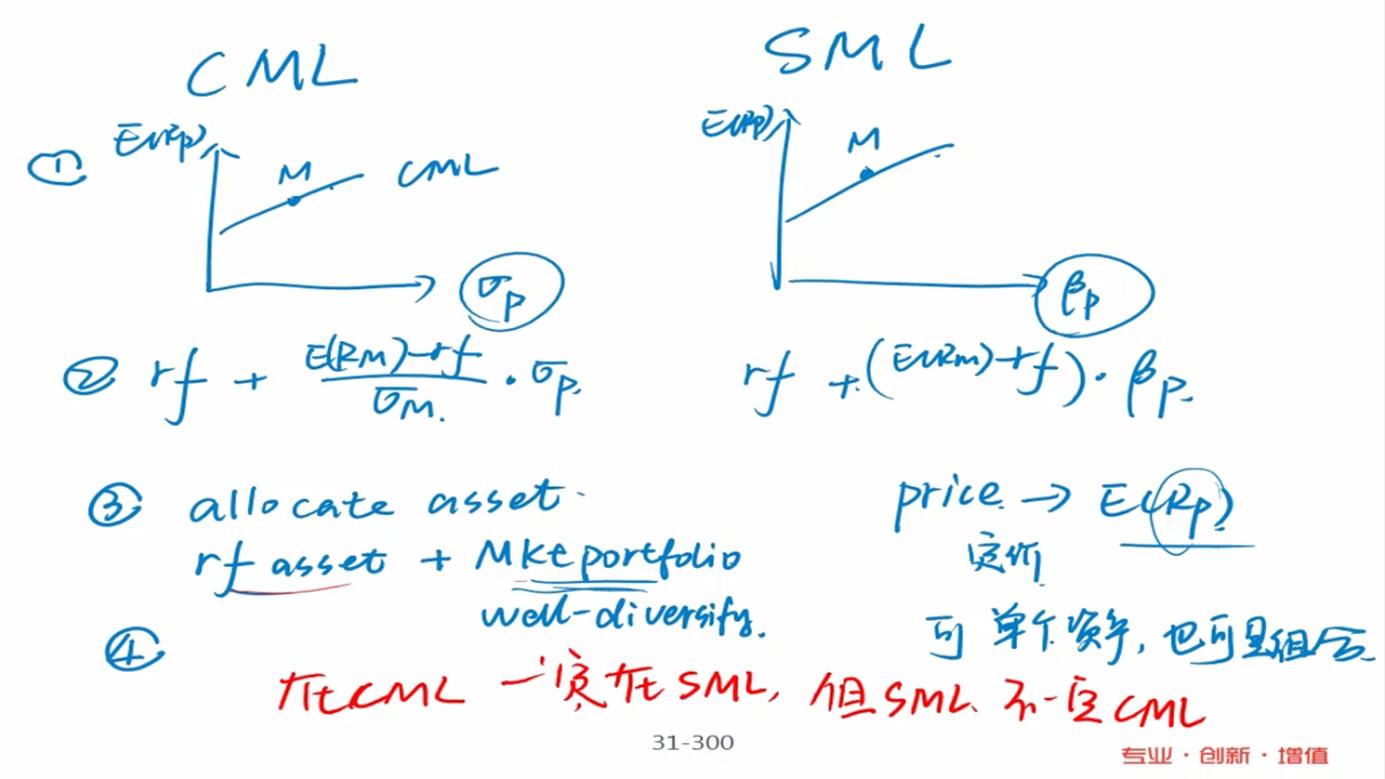 CML
SML
①
E(Rp)
M
CML
σp
E(Rp)
M
βp
② rf + E(RM)-rf / σM · σp
rf + (E(Rm)-rf) · βp
③ allocate asset.
rf asset + Mkt portfolio
well-diversify.
price → E(Rp)
定价
可单个资产,也可是组合
④
在CML 一定在SML, 但SML 不一定CML
31-300
专业·创新·增值